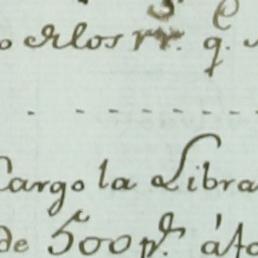 los rr.^s q.^e
Cargo la Libra
de 500 p.^s á